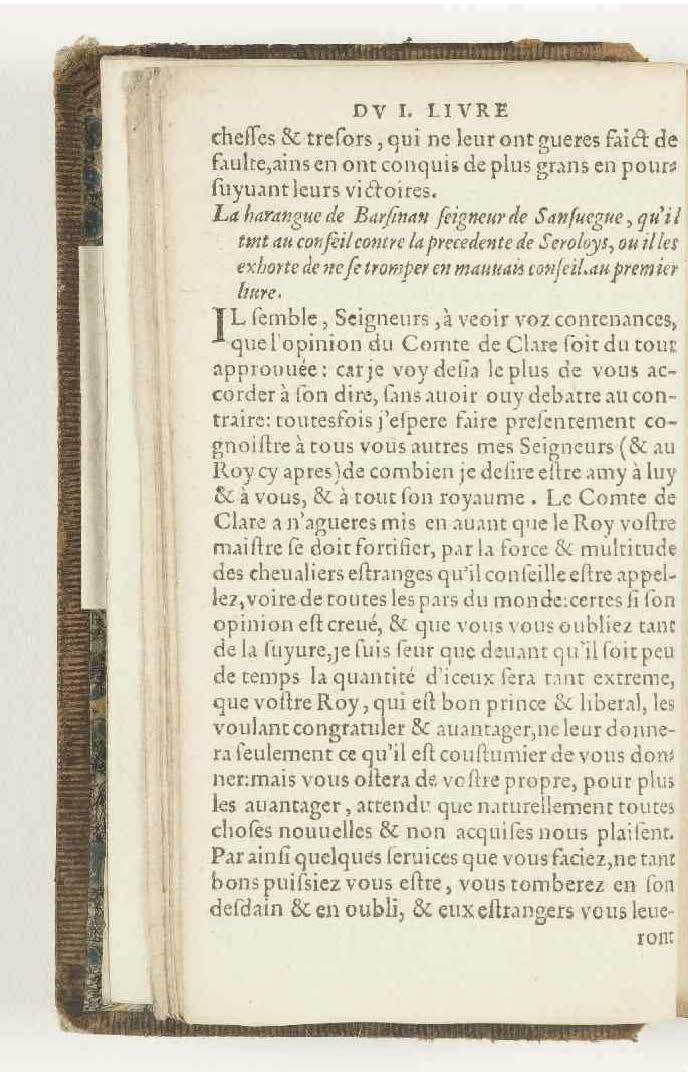 DV I. LIVRE
chesses & tresors, qui ne leur ont gueres faict de
faulte, ains en ont conquis de plus grans en pour-
suyuant leurs victoires.
La harangue de Barsinan seigneur de Sansuegue, qu'il
tint au conseil contre la precedente de Seroloys, ou il les
exhorte de ne se tromper en mauuais conseil. au premier
liure.
IL semble, Seigneurs, à veoir voz contenances,
que l'opinion du Comte de Clare soit du tout
approuuée: car je voy desia le plus de vous ac-
corder à son dire, sans auoir ouy debatre au con-
traire: toutesfois j'espere faire presentement co-
gnoistre à tous vous autres mes Seigneurs (& au
Roy cy apres) de combien je desire estre amy à luy
& à vous, & à tout son royaume. Le Comte de
Clare a n'agueres mis en auant que le Roy vostre
maistre se doit fortifier, par la force & multitude
des cheualiers estranges qu'il conseille estre appel-
lez, voire de toutes les pars du monde: certes si son
opinion est creué, & que vous vous oubliez tant
de la suyure, je suis seur que deuant qu'il soit peu
de temps la quantité d'iceux sera tant extreme,
que vostre Roy, qui est bon prince & liberal, les
voulant congratuler & auantager, ne leur donne-
ra seulement ce qu'il est coustumier de vous don-
ner: mais vous ostera de vostre propre, pour plus
les auantager, attendu que naturellement toutes
choses nouuelles & non acquises nous plaisent.
Par ainsi quelques seruices que vous faciez, ne tant
bons puissiez vous estre, vous tomberez en son
desdain & en oubli, & eux estrangers vous leue-
ront